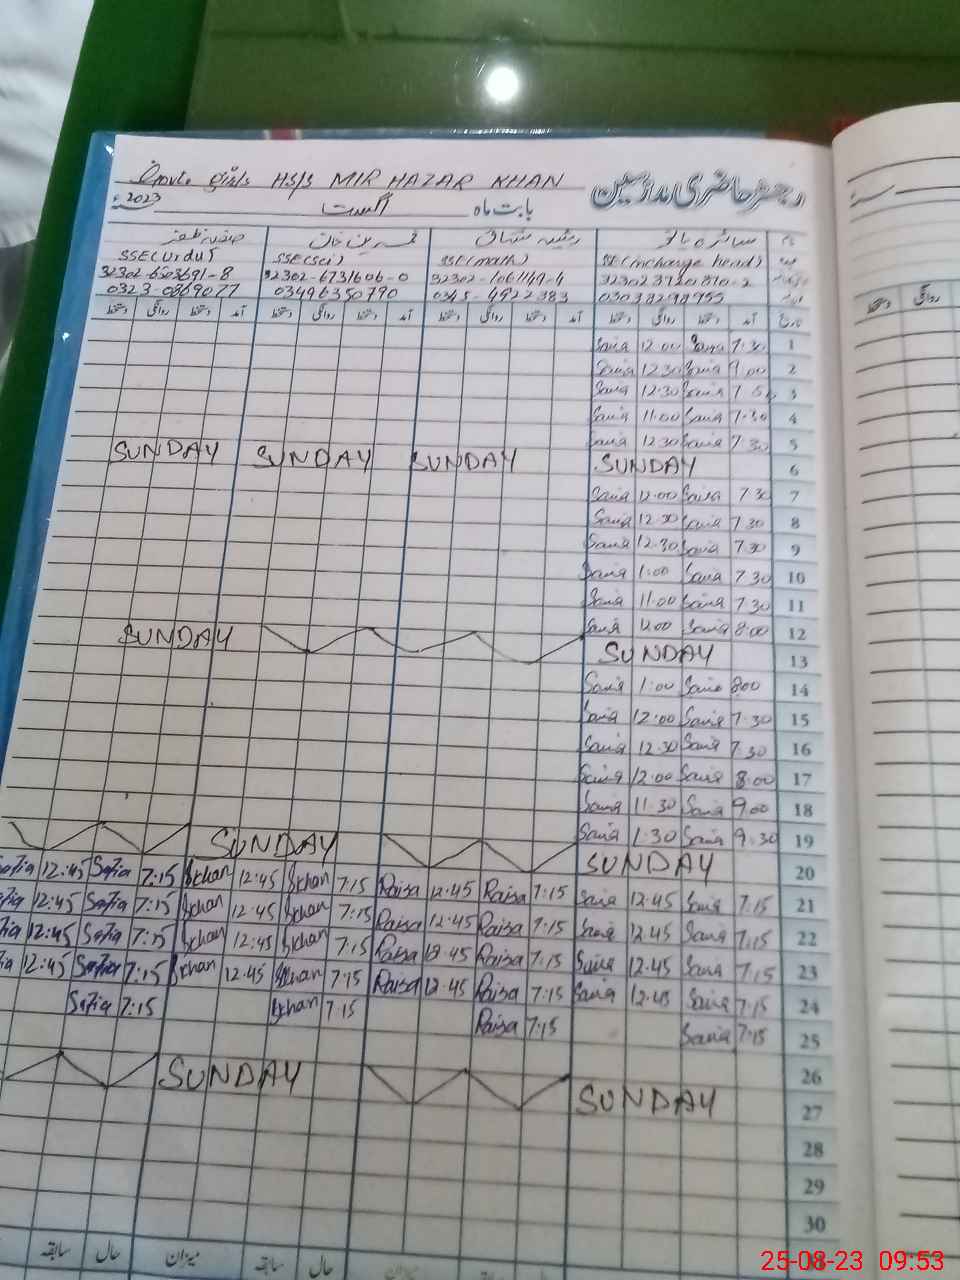 Govt. girls HS/S MIR HAZAR KHAN رجسٹر حاضری مدرسین
2023 اگست بابت ماہ
صفیہ ظفر رئیسہ مشتاق سائرہ بانو
SSE(Urdu) SSE(Sci) SSE(math) SSE(incharge head)
32302-6503691-8 32302-6731606-0 32302-1061149-4
0323-0869077 03496350790 0345-4922383 03038298955
دستخط روانگی دستخط آمد دستخط روانگی دستخط آمد دستخط روانگی دستخط آمد دستخط روانگی دستخط آمد تاریخ
Saira 12:00 Saira 7:30 1
Saira 12:30 Saira 9:00 2
Saira 12:30 Saira 3
Saira 11:00 Saira 7:30 4
Saira 12:30 Saira 7:30 5
SUNDAY SUNDAY SUNDAY SUNDAY 6
Saira 12:00 Saira 7:30 7
Saira 12:30 Saira 7:30 8
Saira 12:30 Saira 7:30 9
Saira 1:00 Saira 7:30 10
Saira 11:00 Saira 7:30 11
Saira 12:00 Saira 8:00 12
SUNDAY SUNDAY 13
Saira 1:00 Saira 8:00 14
Saira 12:00 Saira 7:30 15
Saira 12:30 Saira 7:30 16
Saira 12:00 Saira 8:00 17
Saira 11:30 Saira 9:00 18
Saira 1:30 Saira 9:30 19
SUNDAY SUNDAY 20
Safia 12:45 Safia 7:15 Skhan 12:45 Skhan 7:15 Raisa 12:45 Raisa 7:15 Saira 12:45 Saira 7:15 21
12:45 Safia 7:15 Skhan 12:45 Skhan 7:15 Raisa 12:45 Raisa 7:15 Saira 12:45 Saira 7:15 22
12:45 Safia 7:15 Skhan 12:45 Skhan 7:15 Raisa 12:45 Raisa 7:15 Saira 12:45 Saira 7:15 23
12:45 Safia 7:15 Skhan 12:45 Skhan 7:15 Raisa 12:45 Raisa 7:15 Saira 12:45 Saira 7:15 24
Safia 7:15 Skhan 7:15 Raisa 7:15 Saira 7:15 25
26
SUNDAY SUNDAY 27
28
29
30
سابقہ حال میزان سابقہ حال میزان
روانگی دستخط
25-08-23 09:53